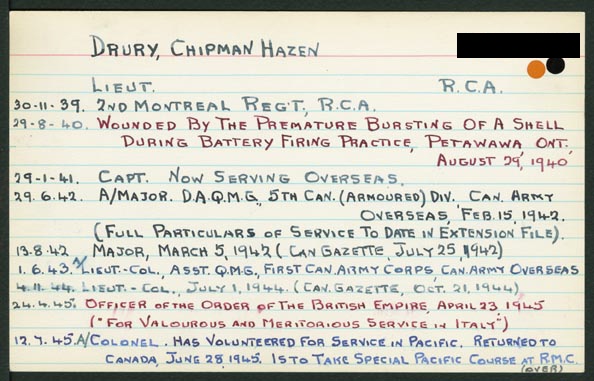 DRURY, CHIPMAN HAZEN
LIEUT. R.C.A.
30-11-39. 2ND MONTREAL REG'T, R.C.A.
29-8-40. WOUNDED BY THE PREMATURE BURSTING OF A SHELL
DURING BATTERY FIRING PRACTICE, PETAWAWA ONT,
AUGUST 29, 1940
29-1-41. CAPT. NOW SERVING OVERSEAS.
29.6.42. A/MAJOR. D.A.Q.M.G., 5TH CAN. (ARMOURED) DIV. CAN. ARMY
OVERSEAS, FEB. 15, 1942.
(FULL PARTICULARS OF SERVICE TO DATE IN EXTENSION FILE).
13.8.42 MAJOR, MARCH 5, 1942 (CAN GAZETTE, JULY 25, 1942)
1.6.43. A/LIEUT.-COL., ASST. Q.M.G., FIRST CAN. ARMY CORPS, CAN. ARMY OVERSEAS
4.11.44. LIEUT.-COL., JULY 1, 1944. (CAN. GAZETTE, OCT. 21, 1944)
24.4.45. OFFICER OF THE ORDER OF THE BRITISH EMPIRE, APRIL 23, 1945
("FOR VALOUROUS AND MERITORIOUS SERVICE IN ITALY")
12.7.45. A/COLONEL. HAS VOLUNTEERED FOR SERVICE IN PACIFIC. RETURNED TO
CANADA, JUNE 28, 1945. IS TO TAKE SPECIAL PACIFIC COURSE AT R.M.C.
(OVER)